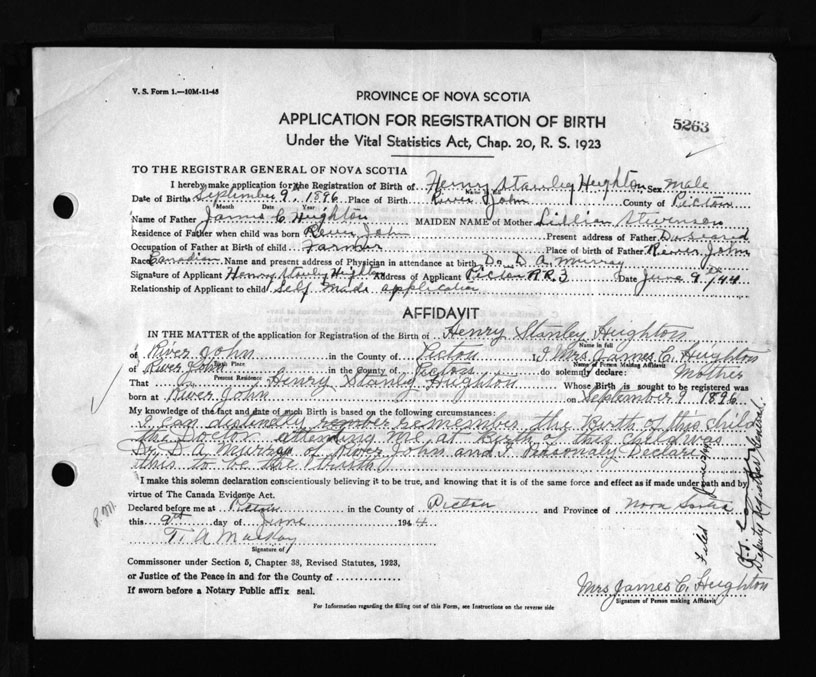 V. S. Form 1.—10M-11-43
PROVINCE OF NOVA SCOTIA
APPLICATION FOR REGISTRATION OF BIRTH
5263
Under the Vital Statistics Act, Chap. 20, R. S. 1923
TO THE REGISTRAR GENERAL OF NOVA SCOTIA
I hereby make application for the Registration of Birth of Henry Stanley Heighton Sex male
Date of Birth September 9 1896 Place of Birth River John County of Pictou
Month Date Year
Name of Father James C Heighton MAIDEN NAME of Mother Lillian Stevenson
Residence of Father when child was born River John Present address of Father Deceased
Occupation of Father at Birth of child Farmer Place of birth of Father River John
Race Canadian Name and present address of Physician in attendance at birth Dr. D A Murray
Signature of Applicant Henry Stanley Heighton Address of Applicant Pictou RR 3 Date June 9th/44
Relationship of Applicant to child Self Made application
AFFIDAVIT
IN THE MATTER of the application for Registration of the Birth of Henry Stanley Heighton
Name in full
of River John in the County of Pictou I Mrs James C. Heighton
Birth Place Name of Person Making Affidavit
of River John in the County of Pictou do solemnly declare: Mother
Present Residence
That Henry Stanley Heighton Whose Birth is sought to be registered was
born at River John on September 9 1896
My knowledge of the fact and date of such Birth is based on the following circumstances:
I can distinctly remember the Birth of this child
the Doctor attending me at Birth of this child was
Dr. D A Murray of River John and I Personaly Declare
this to be the truth
I make this solemn declaration conscientiously believing it to be true, and knowing that it is of the same force and effect as if made under oath and by
virtue of The Canada Evidence Act.
Declared before me at Pictou in the County of Pictou and Province of Nova Scotia
this 9th day of June 1944
T. A Mackay
Signature of
Commissioner under Section 5, Chapter 38, Revised Statutes, 1923,
or Justice of the Peace in and for the County of
If sworn before a Notary Public affix seal.
Mrs James C. Heighton
Signature of Person making Affidavit
For Information regarding the filling out of this Form, see Instructions on the reverse side
Filed June
Deputy Registrar General